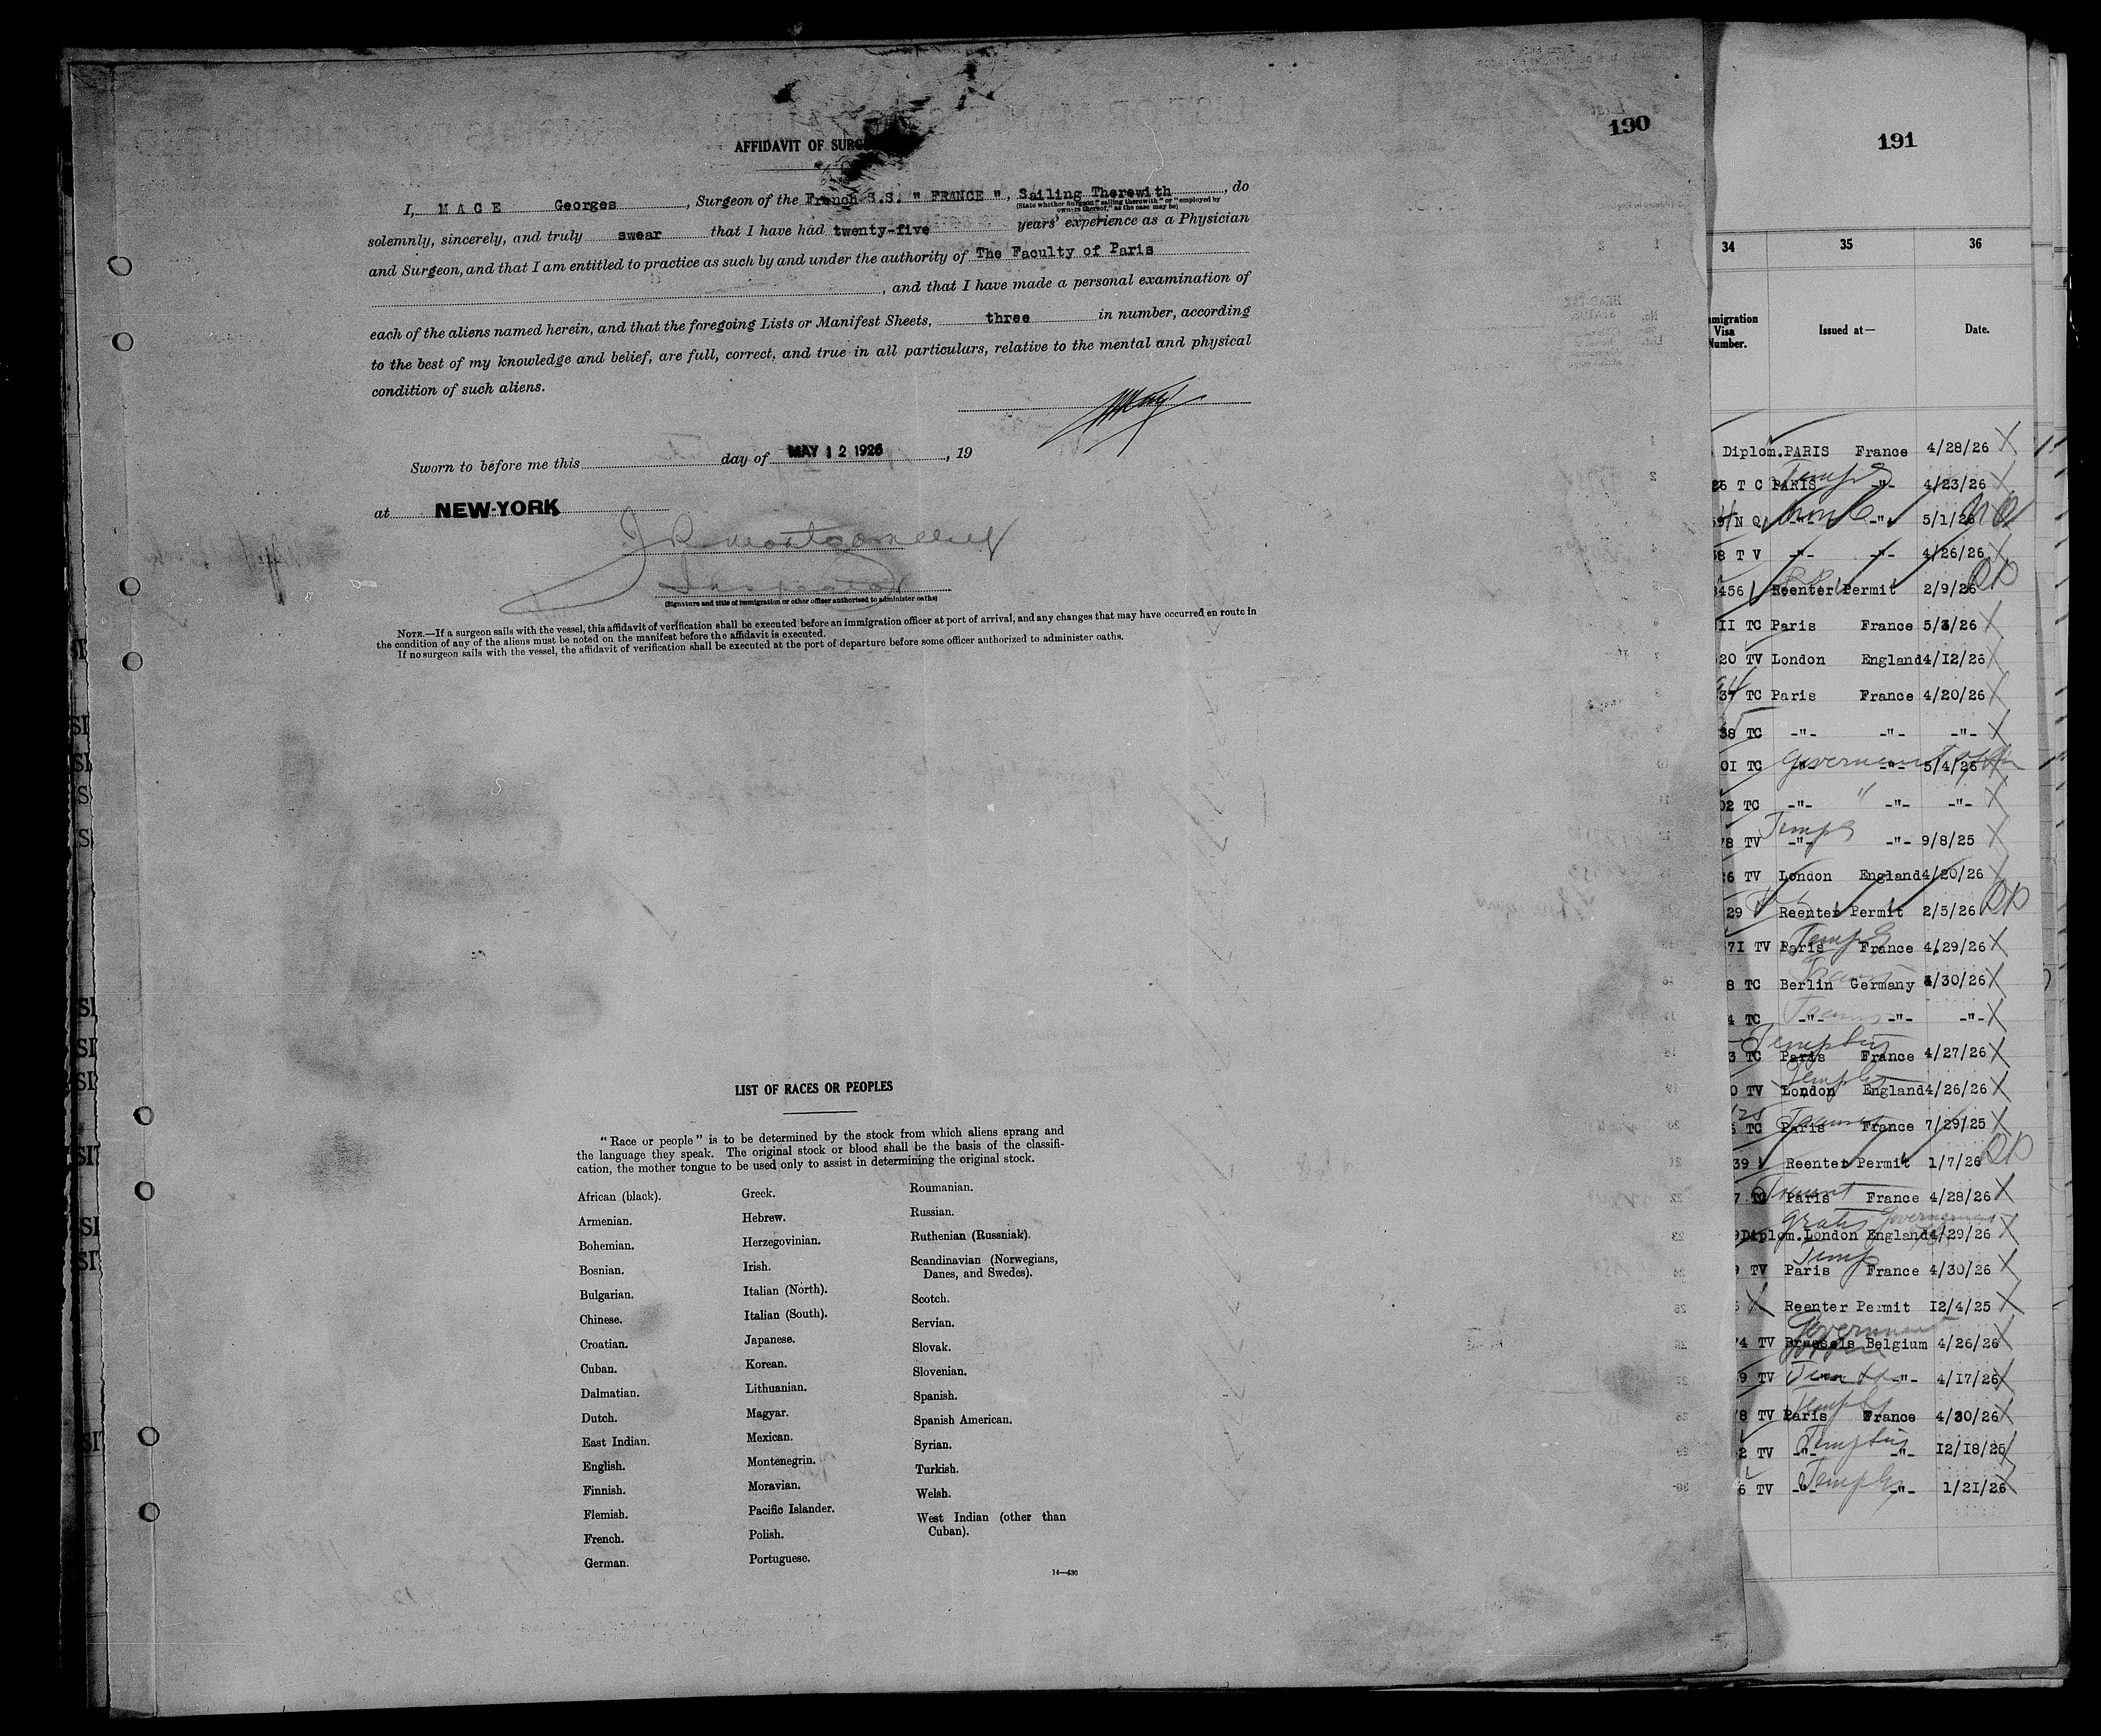 190
AFFIDAVIT OF SURG
I, MACE Georges, Surgeon of the French S.S. " FRANCE ", Sailing Therewith, do
(State whether Surgeon "sailing therewith" or "employed by
owners thereof," as the case may be)
solemnly, sincerely, and truly swear that I have had twenty-five years' experience as a Physician
and Surgeon, and that I am entitled to practice as such by and under the authority of The Faculty of Paris
, and that I have made a personal examination of
each of the aliens named herein, and that the foregoing Lists or Manifest Sheets, three in number, according
to the best of my knowledge and belief, are full, correct, and true in all particulars, relative to the mental and physical
condition of such aliens.
Sworn to before me this day of MAY 12 1926, 19
at NEW-YORK
J R Montgomery
Inspector
(Signature and title of immigration or other officer authorized to administer oaths)
NOTE.—If a surgeon sails with the vessel, this affidavit of verification shall be executed before an immigration officer at port of arrival, and any changes that may have occurred en route in
the condition of any of the aliens must be noted on the manifest before the affidavit is executed.
If no surgeon sails with the vessel, the affidavit of verification shall be executed at the port of departure before some officer authorized to administer oaths.
LIST OF RACES OR PEOPLES
"Race or people" is to be determined by the stock from which aliens sprang and
the language they speak. The original stock or blood shall be the basis of the classifi-
cation, the mother tongue to be used only to assist in determining the original stock.
African (black).
Armenian.
Bohemian.
Bosnian.
Bulgarian.
Chinese.
Croatian.
Cuban.
Dalmatian.
Dutch.
East Indian.
English.
Finnish.
Flemish.
French.
German.
Greek.
Hebrew.
Herzegovinian.
Irish.
Italian (North).
Italian (South).
Japanese.
Korean.
Lithuanian.
Magyar.
Mexican.
Montenegrin.
Moravian.
Pacific Islander.
Polish.
Portuguese.
Roumanian.
Russian.
Ruthenian (Russniak).
Scandinavian (Norwegians,
Danes, and Swedes).
Scotch.
Servian.
Slovak.
Slovenian.
Spanish.
Spanish American.
Syrian.
Turkish.
Welsh.
West Indian (other than
Cuban).
14—430
191
34 35 36
migration
Visa
Number.
Issued at—
Date.
Diplom. PARIS France 4/28/26
26 T C PARIS -"- 4/23/26
Temp
N Q -"- -"- 5/1/26
38 T V -"- -"- 4/26/26
3456 Reenter Permit 2/9/26
II TC Paris France 5/3/26
20 TV London England 4/12/26
37 TC Paris France 4/20/26
38 TC -"- -"- -"-
01 TC Government -"- 5/4/26
02 TC -"- -"- -"-
Temp
78 TV -"- -"- 9/8/25
26 TV London England 4/20/26
29 Reenter Permit 2/5/26
Temp
71 TV Paris France 4/29/26
8 TC Berlin Germany 3/30/26
4 TC -"- -"- -"-
3 TC Paris France 4/27/26
0 TV London England 4/26/26
TC Paris France 7/29/25
39 Reenter Permit 1/7/26
7 TC Paris France 4/28/26
Gratis Government
Diplom. London England 4/29/26
Temp
9 TV Paris France 4/30/26
Reenter Permit 12/4/25
Government
74 TV Brussels Belgium 4/26/26
9 TV -"- 4/17/26
78 TV Paris France 4/30/26
2 TV -"- -"- 12/18/25
6 TV -"- -"- 1/21/26